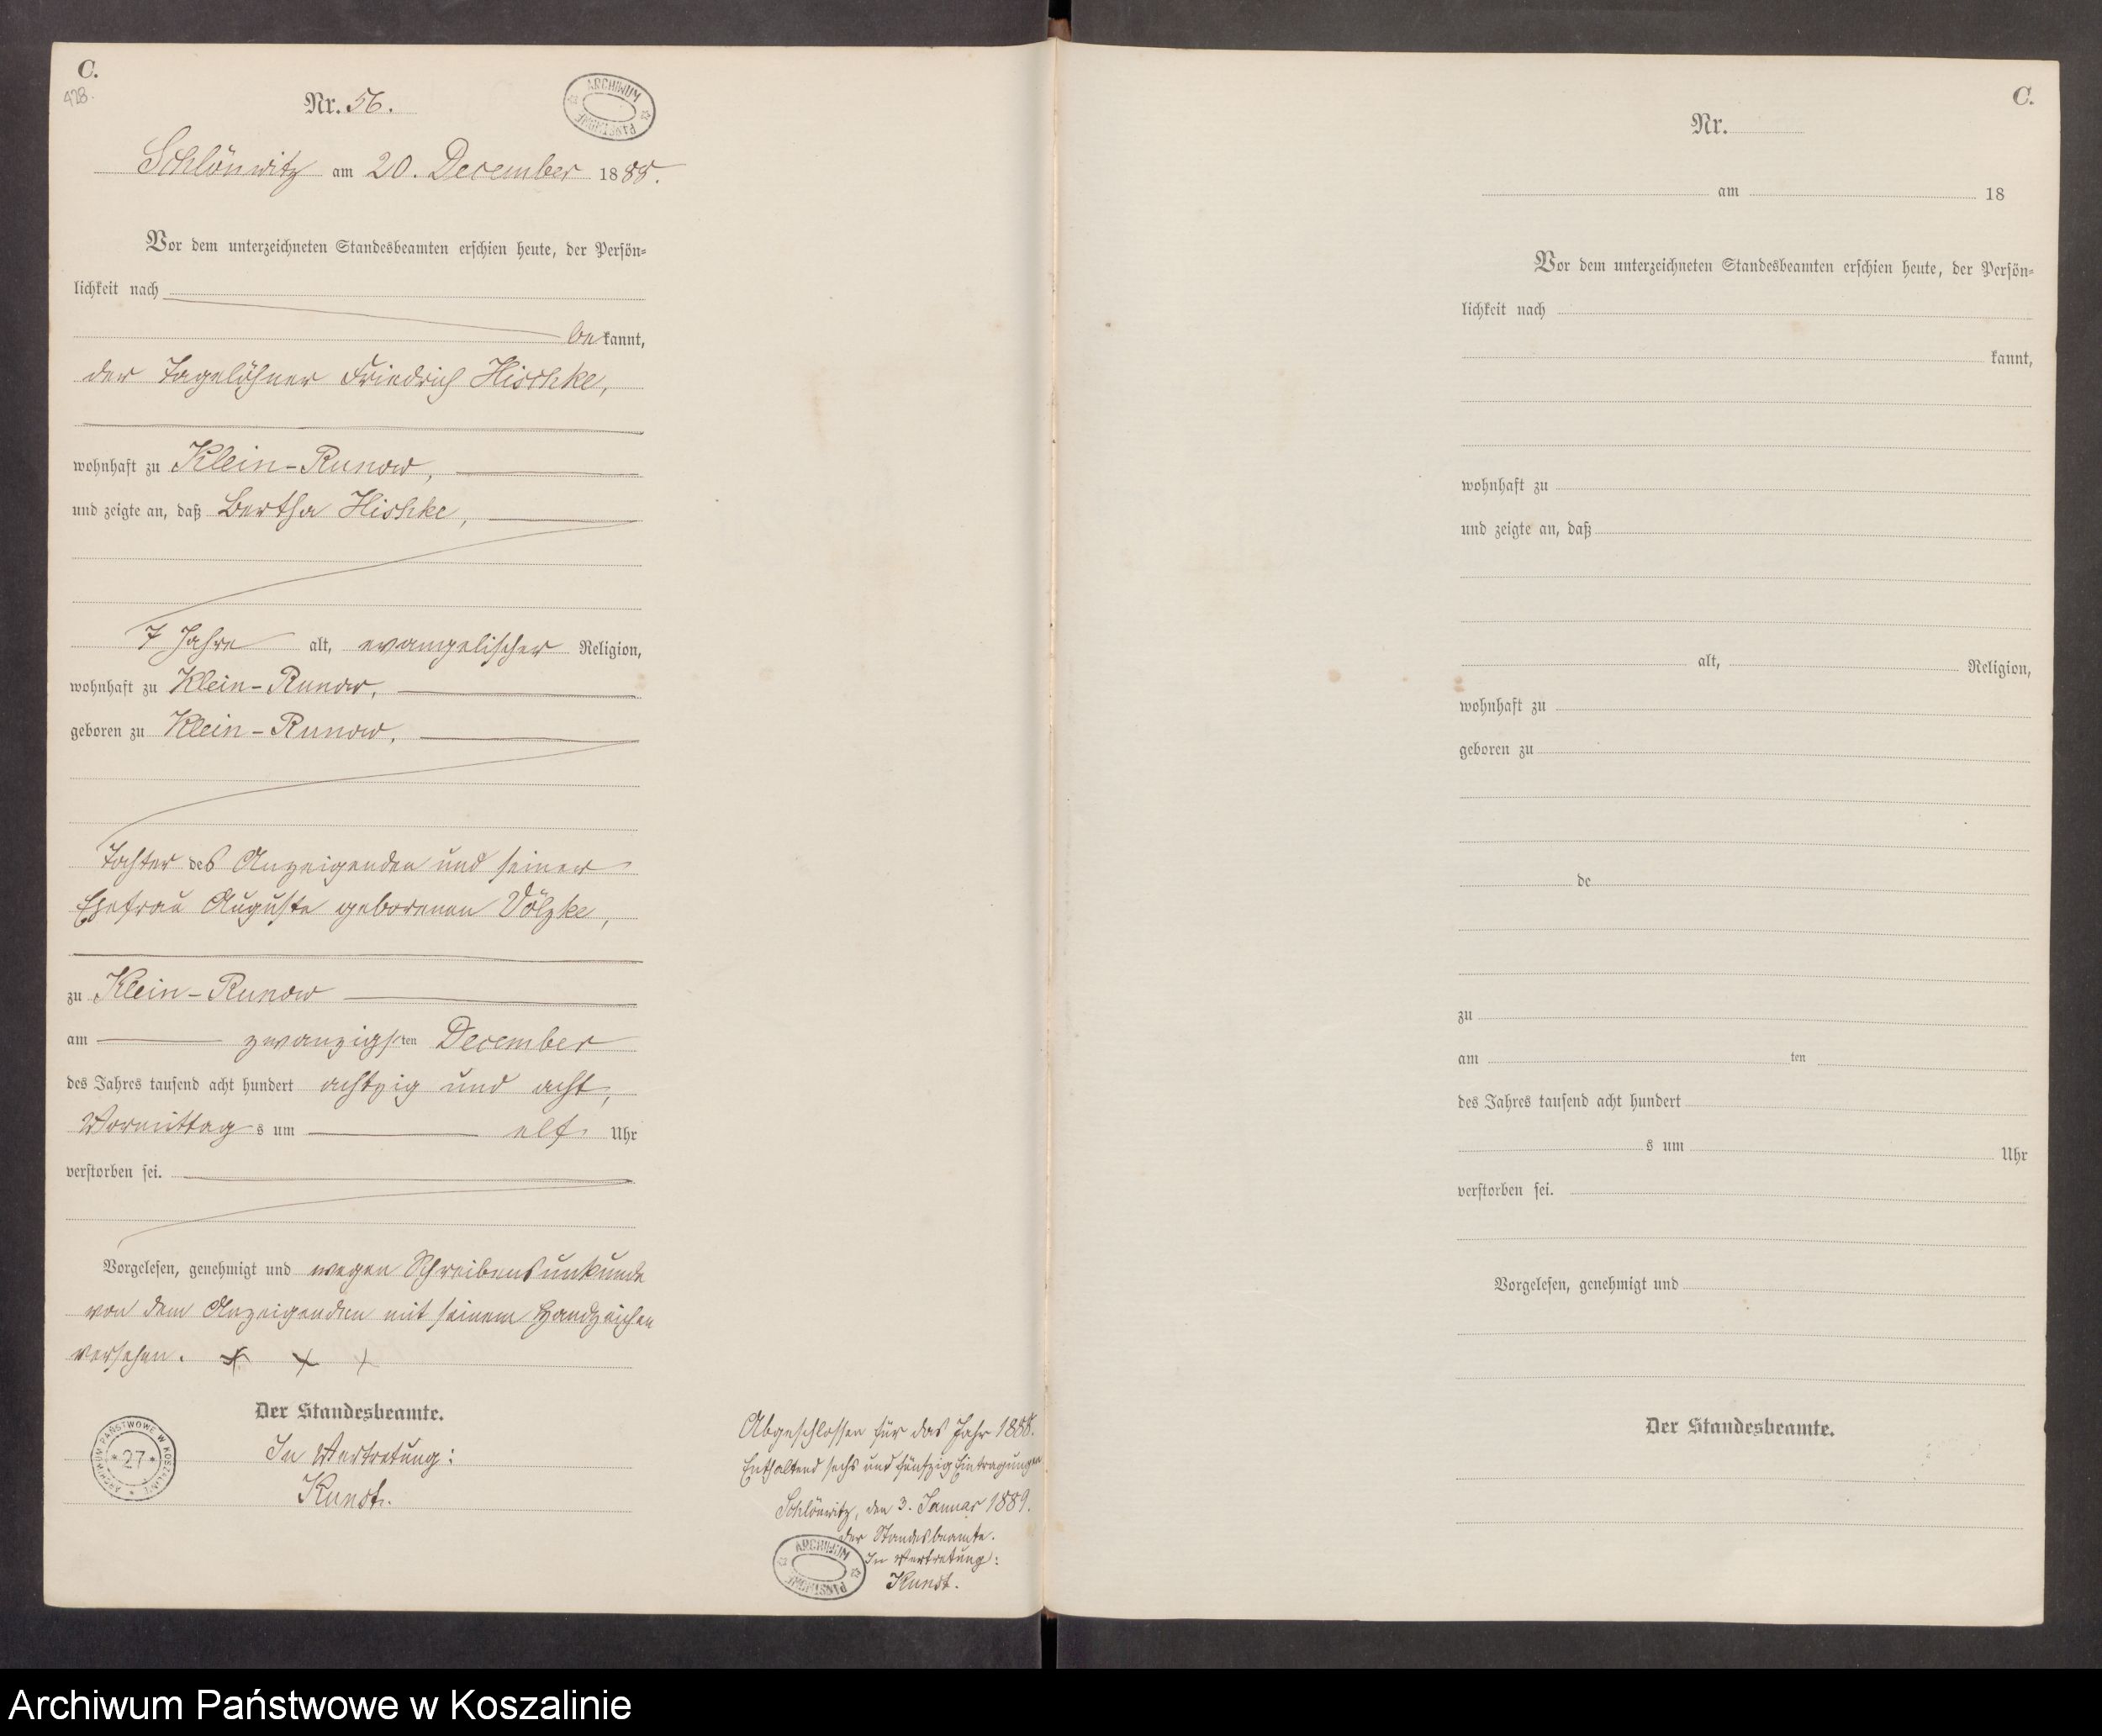 C.
428.
Nr. 56.
ARCHIWUM
PAŃSTWOWE
Schlönwitz am 20. December 1888.
Vor dem unterzeichneten Standesbeamten erschien heute, der Persön-
lichkeit nach
bekannt,
der Tagelöhner Friedrich Hischke,
wohnhaft zu Klein-Runow,
und zeigte an, daß Bertha Hishke,
7 Jahre alt, evangelischer Religion,
wohnhaft zu Klein-Runow,
geboren zu Klein-Runow,
Tochter des Anzeigenden und seiner
Ehefrau Auguste geborenen Völzke,
zu Klein-Runow
am zwanzigsten December
des Jahres tausend acht hundert achtzig und acht,
Vormittags um elf Uhr
verstorben sei.
Vorgelesen, genehmigt und wegen Schreibensunkunde
von dem Anzeigenden mit seinem Handzeichen
versehen. + + +
Der Standesbeamte.
In Vertretung:
Kunst.
ARCHIWUM PAŃSTWOWE W KOSZALINIE
* 27 *
Abgeschlossen für das Jahr 1888.
Enthaltend sechs und fünfzig Eintragungen
Schlönwitz, den 3. Januar 1889.
Der Standesbeamte.
In Vertretung:
Kunst.
ARCHIWUM
PAŃSTWOWE
C.
Nr.
am 18
Vor dem unterzeichneten Standesbeamten erschien heute, der Persön-
lichkeit nach
kannt,
wohnhaft zu
und zeigte an, daß
alt, Religion,
wohnhaft zu
geboren zu
de
zu
am ten
des Jahres tausend acht hundert
s um Uhr
verstorben sei.
Vorgelesen, genehmigt und
Der Standesbeamte.
Archiwum Państwowe w Koszalinie